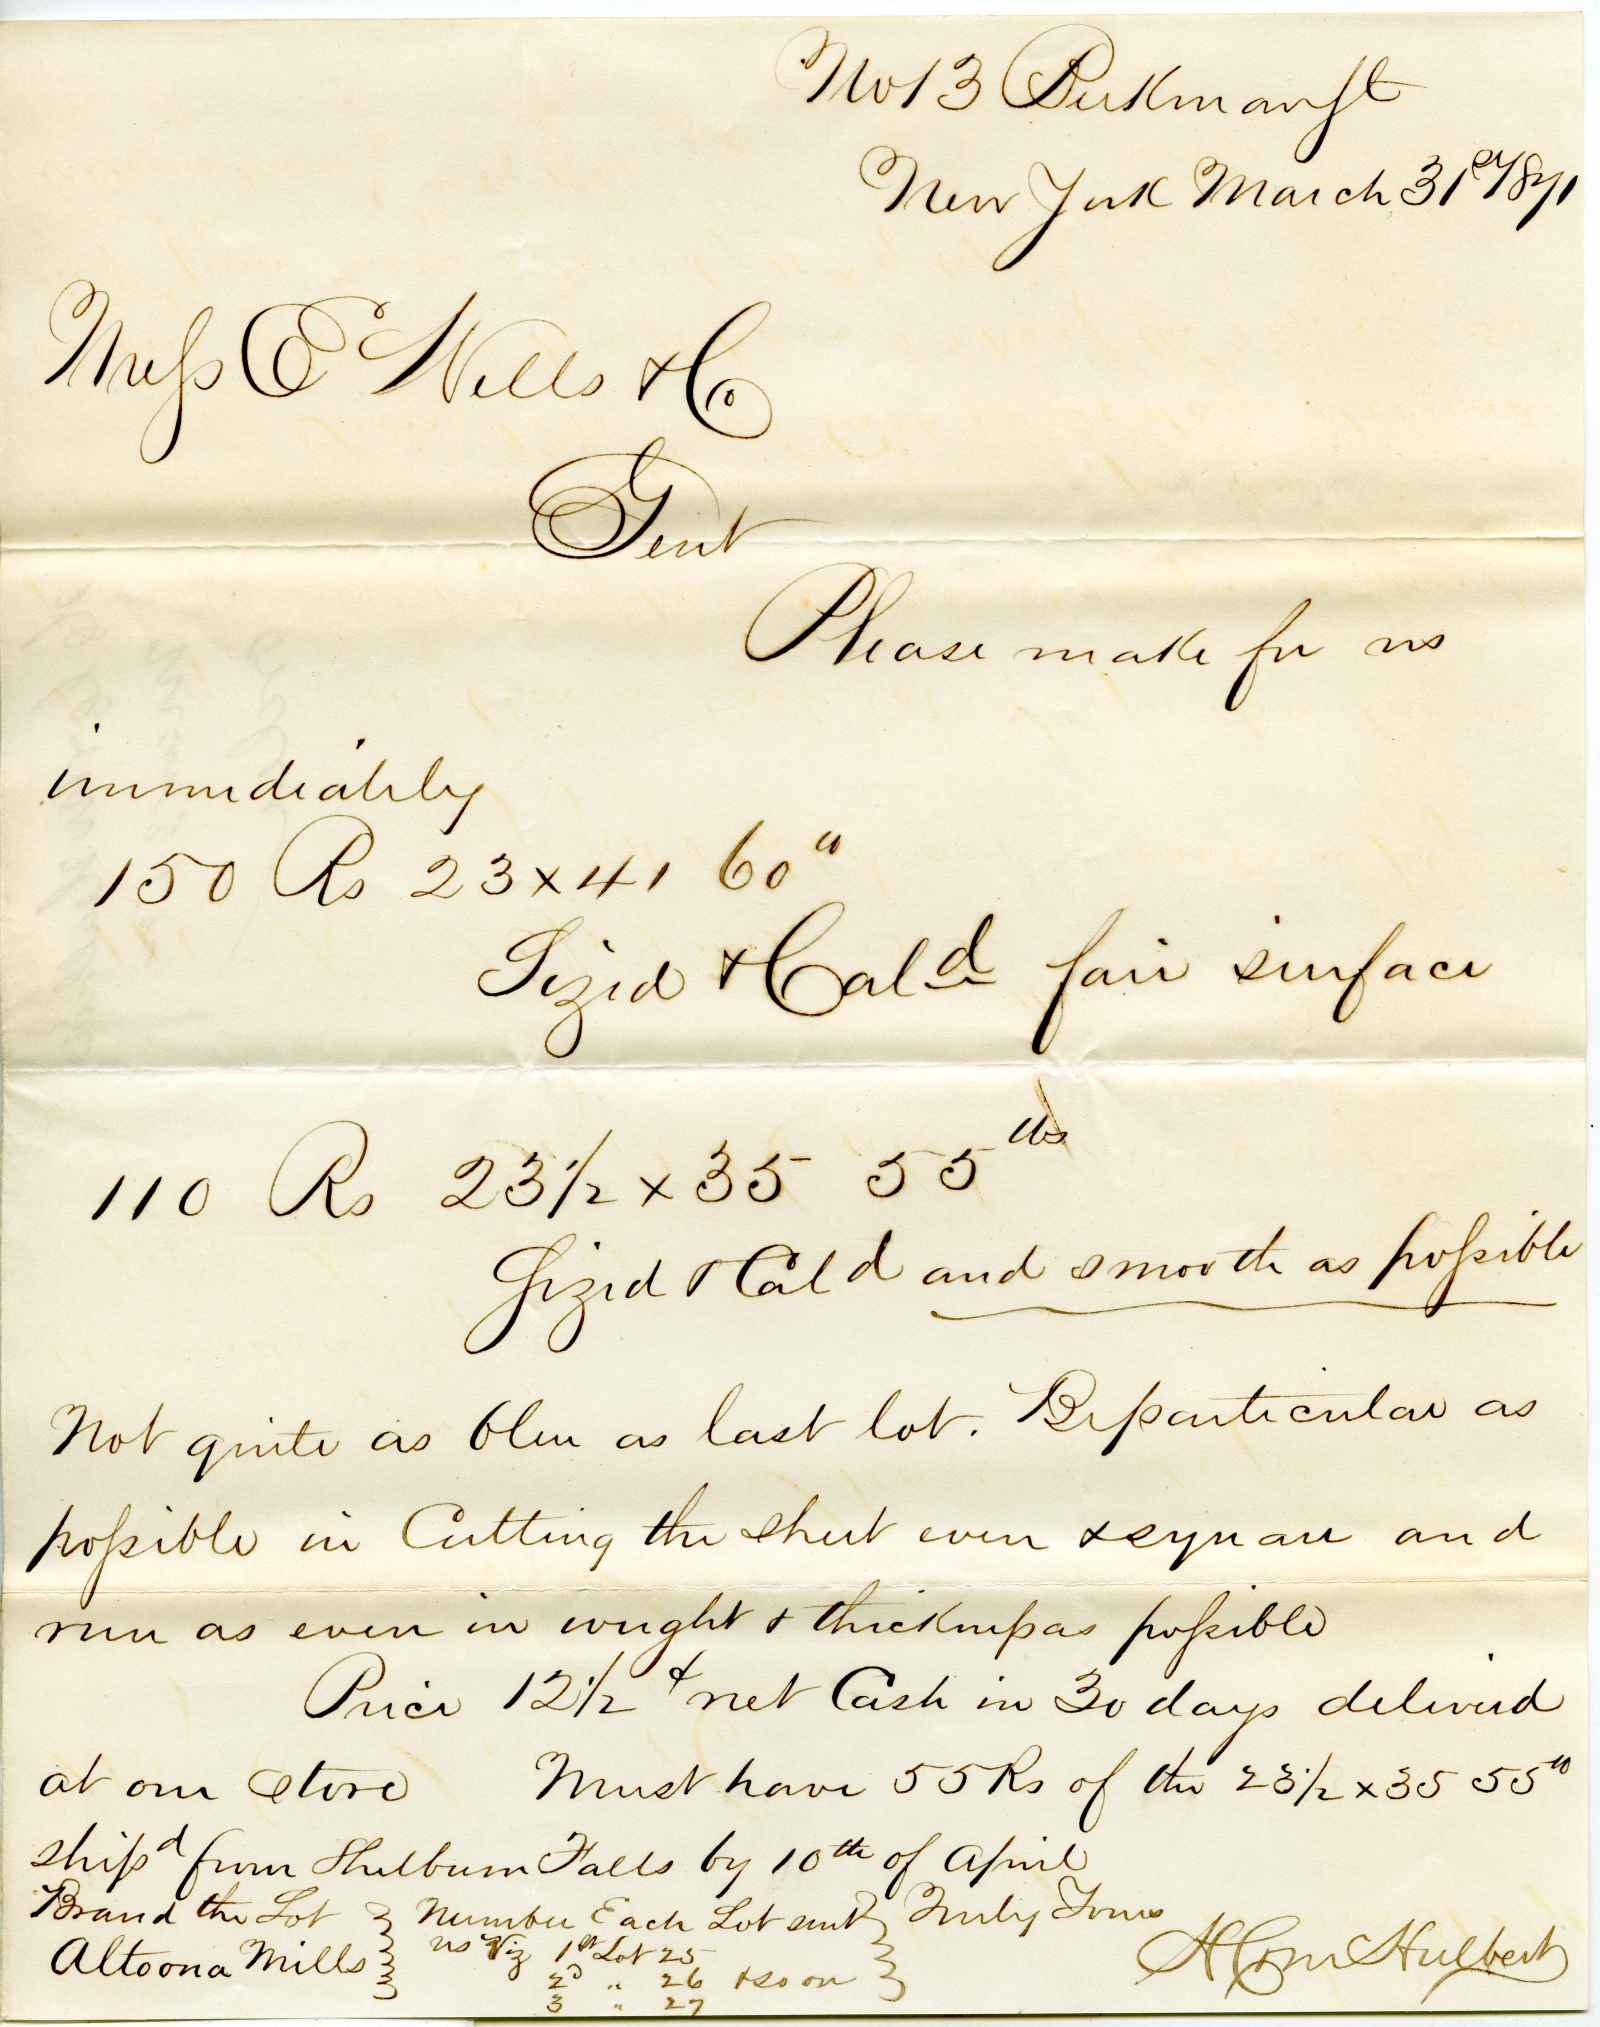 No 13 Beekman St
New York March 31st 1871
Mess E Wells & Co
Gent
Please make for us
immediately
150 Rs 23 x 41 60"
Sized & Cald fair surface
110 Rs 23 1/2 x 35 55 lbs
Sized & Cald and smooth as possible
Not quite as blue as last lot. Be particular as
possible in Cutting the sheet even & square and
run as even in weight & thickness as possible
Price 12 1/2 ¢ net Cash in 30 days delivered
at our store Must have 55 Rs of the 23 1/2 x 35 55"
shipd from Shelburn Falls by 10th of April
Brand the Lot } Number Each Lot sent } Truly Yours
Altoona Mills } us Viz 1st Lot 25 }
2d " 26 & so on
3 " 27
Hulbert